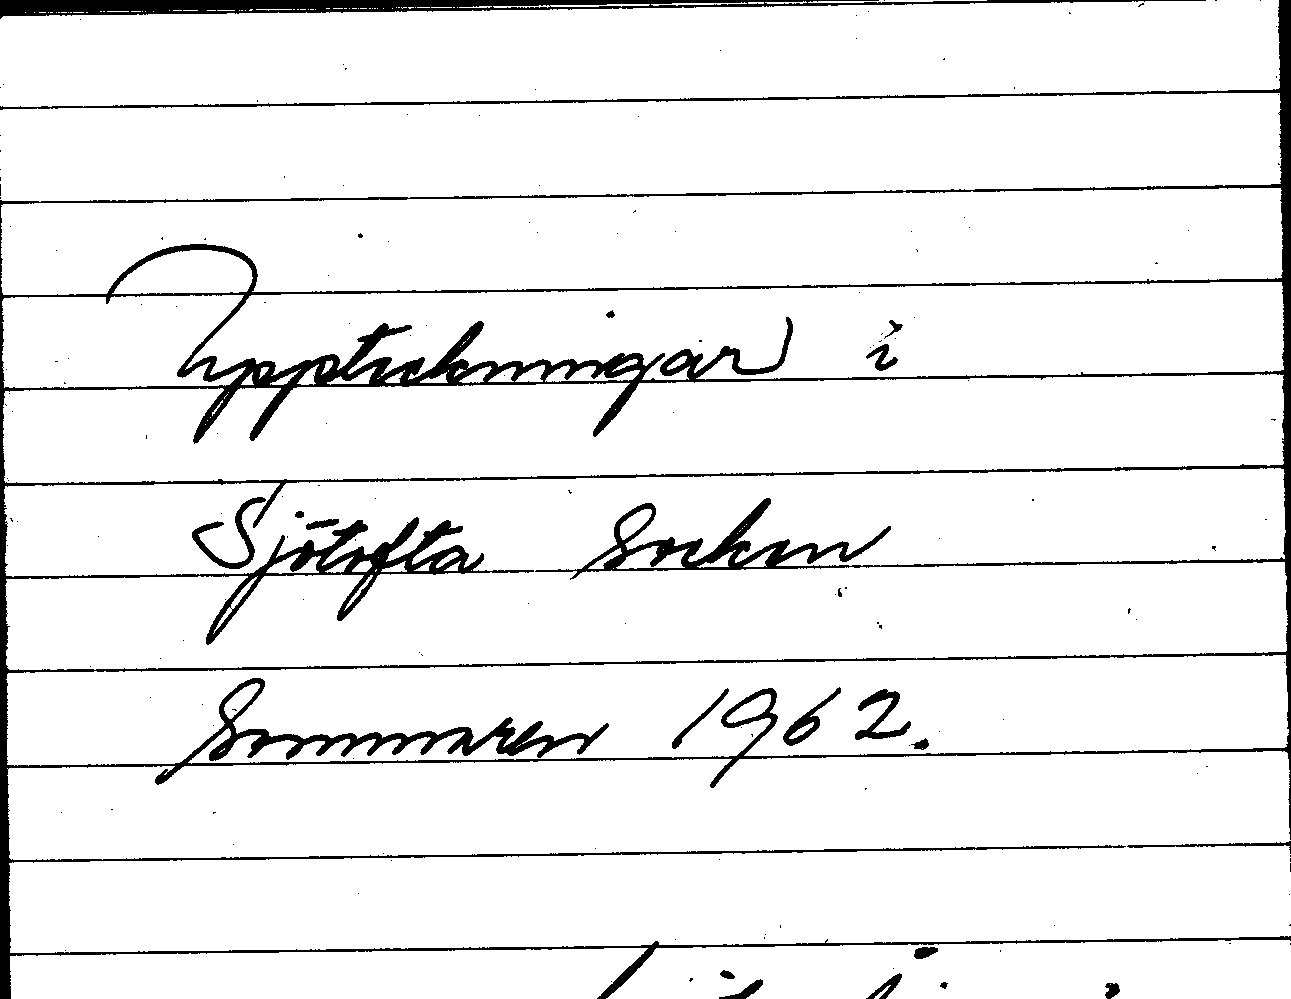 Uppteckningar i
Sjötofta Socken
Sommaren 1962.